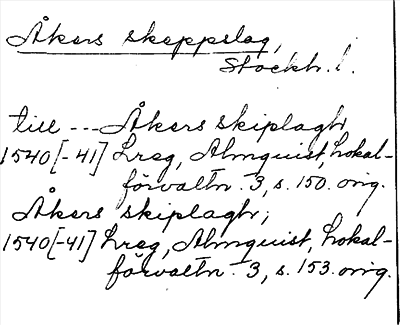 Åkers skeppslag,
Stockh. l.
till --- Åkers skiplaghr
1540[-41] Lreg, Almquist, Lokal-
förvaltn. 3, s. 150. orig.
Åkers skiplaghr;
1540[-41] Lreg, Almquist, Lokal-
förvaltn. 3, s. 153. orig.